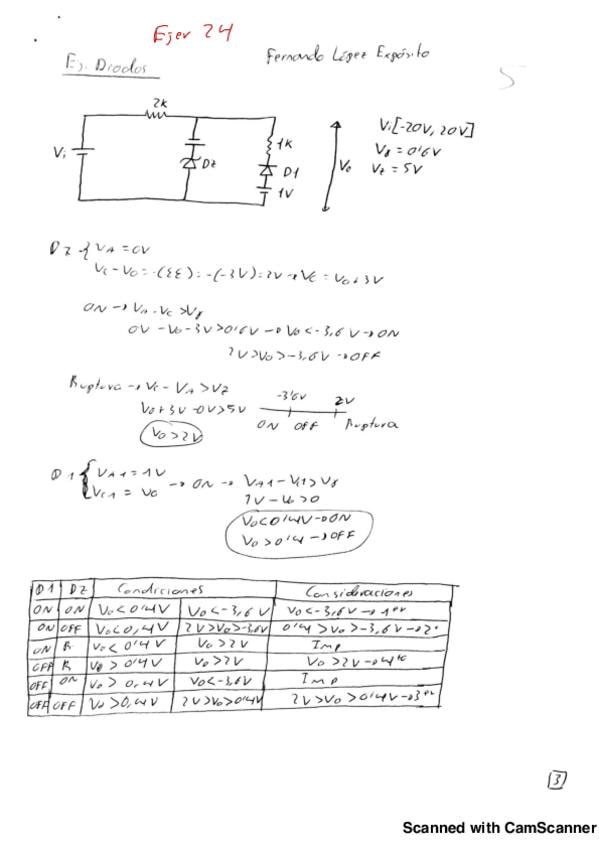 Ejer 24
Ej. Diodos
Fernando López Expósito
5
2K
Vi
Dz
1K
D1
1V
Vo
Vi[-20V, 20V]
Vγ = 0'6V
Vz = 5V
Dz { VA = 0V
ON → VA - VC > Vγ
0V - Vo - 3V > 0'6V → Vo < -3,6V → ON
2V > Vo > -3,6V → OFF
Ruptura → VC - VA > VZ
Vo + 3V - 0V > 5V
Vo > 2V
-3'6V 2V
ON OFF Ruptura
D1 { VA1 = 1V
VC1 = Vo → ON → VA1 - VC1 > Vγ
1V - Vo > 0
Vo < 0'4V → ON
Vo > 0'4 → OFF
D1 DZ Condiciones Consideraciones
ON ON Vo < 0'4V Vo < -3,6V Vo < -3,6V → 1er
ON OFF Vo < 0,4V 2V > Vo > -3,6V 0'4 > Vo > -3,6V → 2º
ON R Vo < 0'4V Vo > 2V Imp
OFF R Vo > 0'4V Vo > 2V Vo > 2V → 4to
OFF ON Vo > 0,4V Vo < -3,6V Imp
OFF OFF Vo > 0,4V 2V > Vo > 0'4V 2V > Vo > 0'4V → 3er
3
Scanned with CamScanner